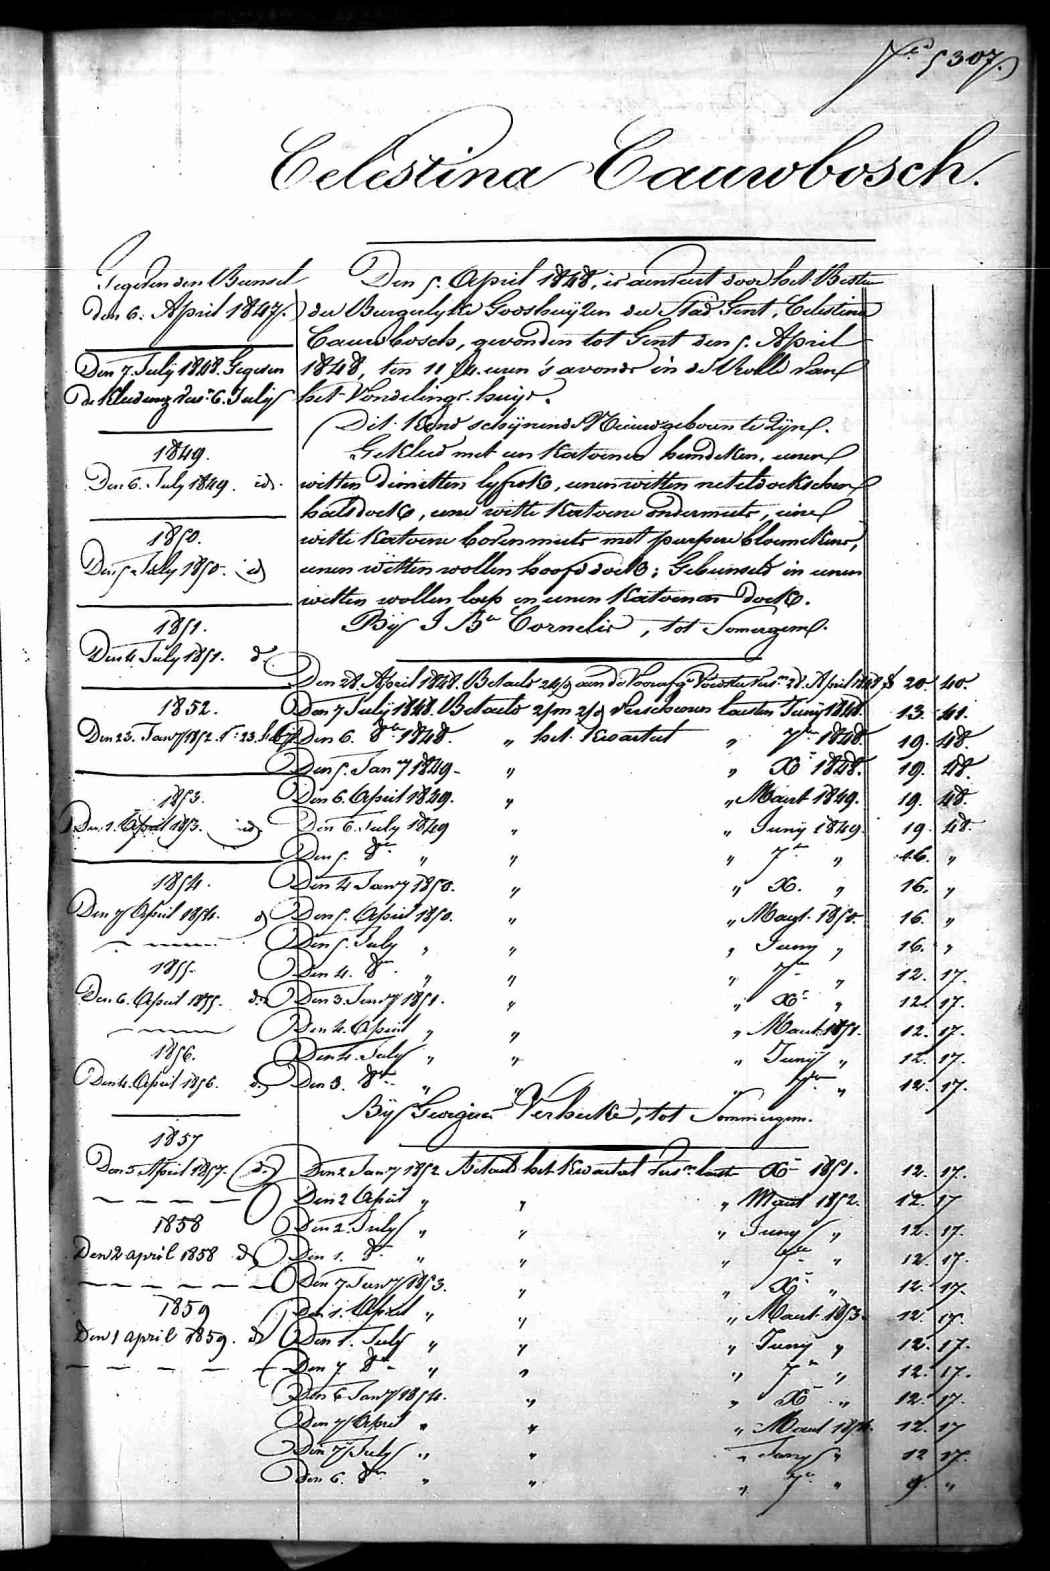 5307.
Celestina Cauwbosch.
Gegeven den Bunsel
den 6. April 1847.
Den 7. July 1848. Gegeven
de Kleeding Vers. 6. July
1849.
Den 6. July 1849. id.
1850.
Den 5 July 1850. id
1851.
Den 4. July 1851. d.
1852.
Den 23. Janry 1852.
1853.
Den 1. April 1853. id
1854.
Den 7 April 1854. d
1855.
Den 6. April 1855. d.
1856.
Den 4. April 1856. d.
1857
Den 3 April 1857. d.
1858
Den 2 april 1858 d
1859
Den 1 april 1859. d
Den 5. April 1848, is aenveert door het Bestier
der Burgerlyke Godshuyzen der Stad Gent, Celestina
Cauwbosch, gevonden tot Gent den 5. April
1848, ten 11 1/4 uren 's avonds in de Rolle van
het Vondelings-huys.
Dit Kind schynende Nieuwgeboren te zyn.
Gekleed met een Katoenen hemdeken, eenen
witten dimitten lyfrok, eenen witten neteldoekschen
halsdoek, eene witte Katoene ondermuts, eene
witte Katoene bovenmuts met purpere bloemekens,
eenen witten wollen hoofddoek; Gebunseld in eenen
witten wollen lap en eenen Katoenen doek.
Bij J. Bte Cornelis, tot Somergem.
Den 28. April 1848. Betaelt aen de 20. 40.
Den 7 July 1848. Betaelt 2/m 2/d Verschenen laesten Juny 1848. 13. 41.
Den 6. 8ber 1848. " het Kwartael " 7ber 1848. 19. 48.
Den 5. Janry 1849. " " Xber 1848. 19. 48.
Den 6. April 1849. " " Maert 1849. 19. 48.
Den 6. July 1849 " " Juny 1849. 19. 48.
Den 5. 8ber " " " 7ber " 16. "
Den 4 Janry 1850. " " X. " 16. "
Den 5. April 1850. " " Maert 1850. 16. "
Den 5. July " " " Juny " 16. "
Den 4. 8ber " " " 7ber " 12. 17.
Den 3. Janry 1851. " " Xber " 12. 17.
Den 4. April " " " Maert 1851. 12. 17.
Den 4. July " " " Juny " 12. 17.
Den 3. 8ber " " " 7ber " 12. 17.
Bij Verbeeke, tot Sommergem.
Den 2 Janry 1852 Betaelt het Kwartael Vers. laest Xber 1851. 12. 17.
Den 2 April " " " Maert 1852. 12. 17
Den 2. July " " " Juny " 12. 17.
Den 1. 8ber " " " 7ber " 12. 17.
Den 7 Janry 1853. " " Xber " 12. 17.
Den 1. April " " " Maert 1853. 12. 17.
Den 1. July " " " Juny " 12. 17.
Den 7 8ber " " " 7ber " 12. 17.
Den 6 Janry 1854. " " Xber " 12. 17.
Den 7 April " " " Maert 1854. 12. 17
Den 7 July " " " Juny " 12 17.
Den 6. 8ber " " " 7ber " 9. "